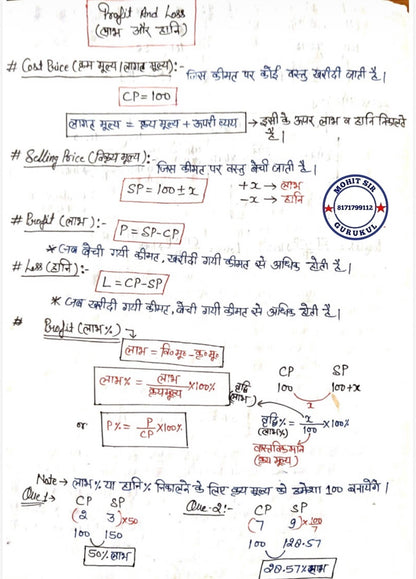 Profit And Loss
(लाभ और हानि)
# Cost Price (क्रय मूल्य/लागत मूल्य):- जिस कीमत पर कोई वस्तु खरीदी जाती है।
CP = 100
लागत मूल्य = क्रय मूल्य + ऊपरी व्यय → इसी के ऊपर लाभ व हानि निकालते है।
# Selling Price (विक्रय मूल्य):- जिस कीमत पर वस्तु बेची जाती है।
SP = 100 ± x
+x → लाभ
-x → हानि
MOHIT SIR
8171799112
GURUKUL
# Profit (लाभ):- P = SP-CP
* जब बेची गयी कीमत, खरीदी गयी कीमत से अधिक होती है।
# Loss (हानि):- L = CP-SP
* जब खरीदी गयी कीमत, बेची गयी कीमत से अधिक होती है।
# Profit (लाभ%)
लाभ = वि०मू०-क्र०मू०
लाभ% = लाभ/क्रयमूल्य × 100%
or P% = P/CP × 100%
CP SP
100 100+x
x
वृद्धि (लाभ)
वृद्धि% (लाभ%) = x/100 × 100%
वास्तविक मान
(क्रय मूल्य)
Note → लाभ% या हानि% निकालने के लिए क्रय मूल्य को हमेशा 100 बनायेंगे।
Que-1→ CP SP
(2 3)×50
100 150
50% लाभ
Que-2:- CP SP
(7 9)×100/7
100 128.57
28.57% लाभ